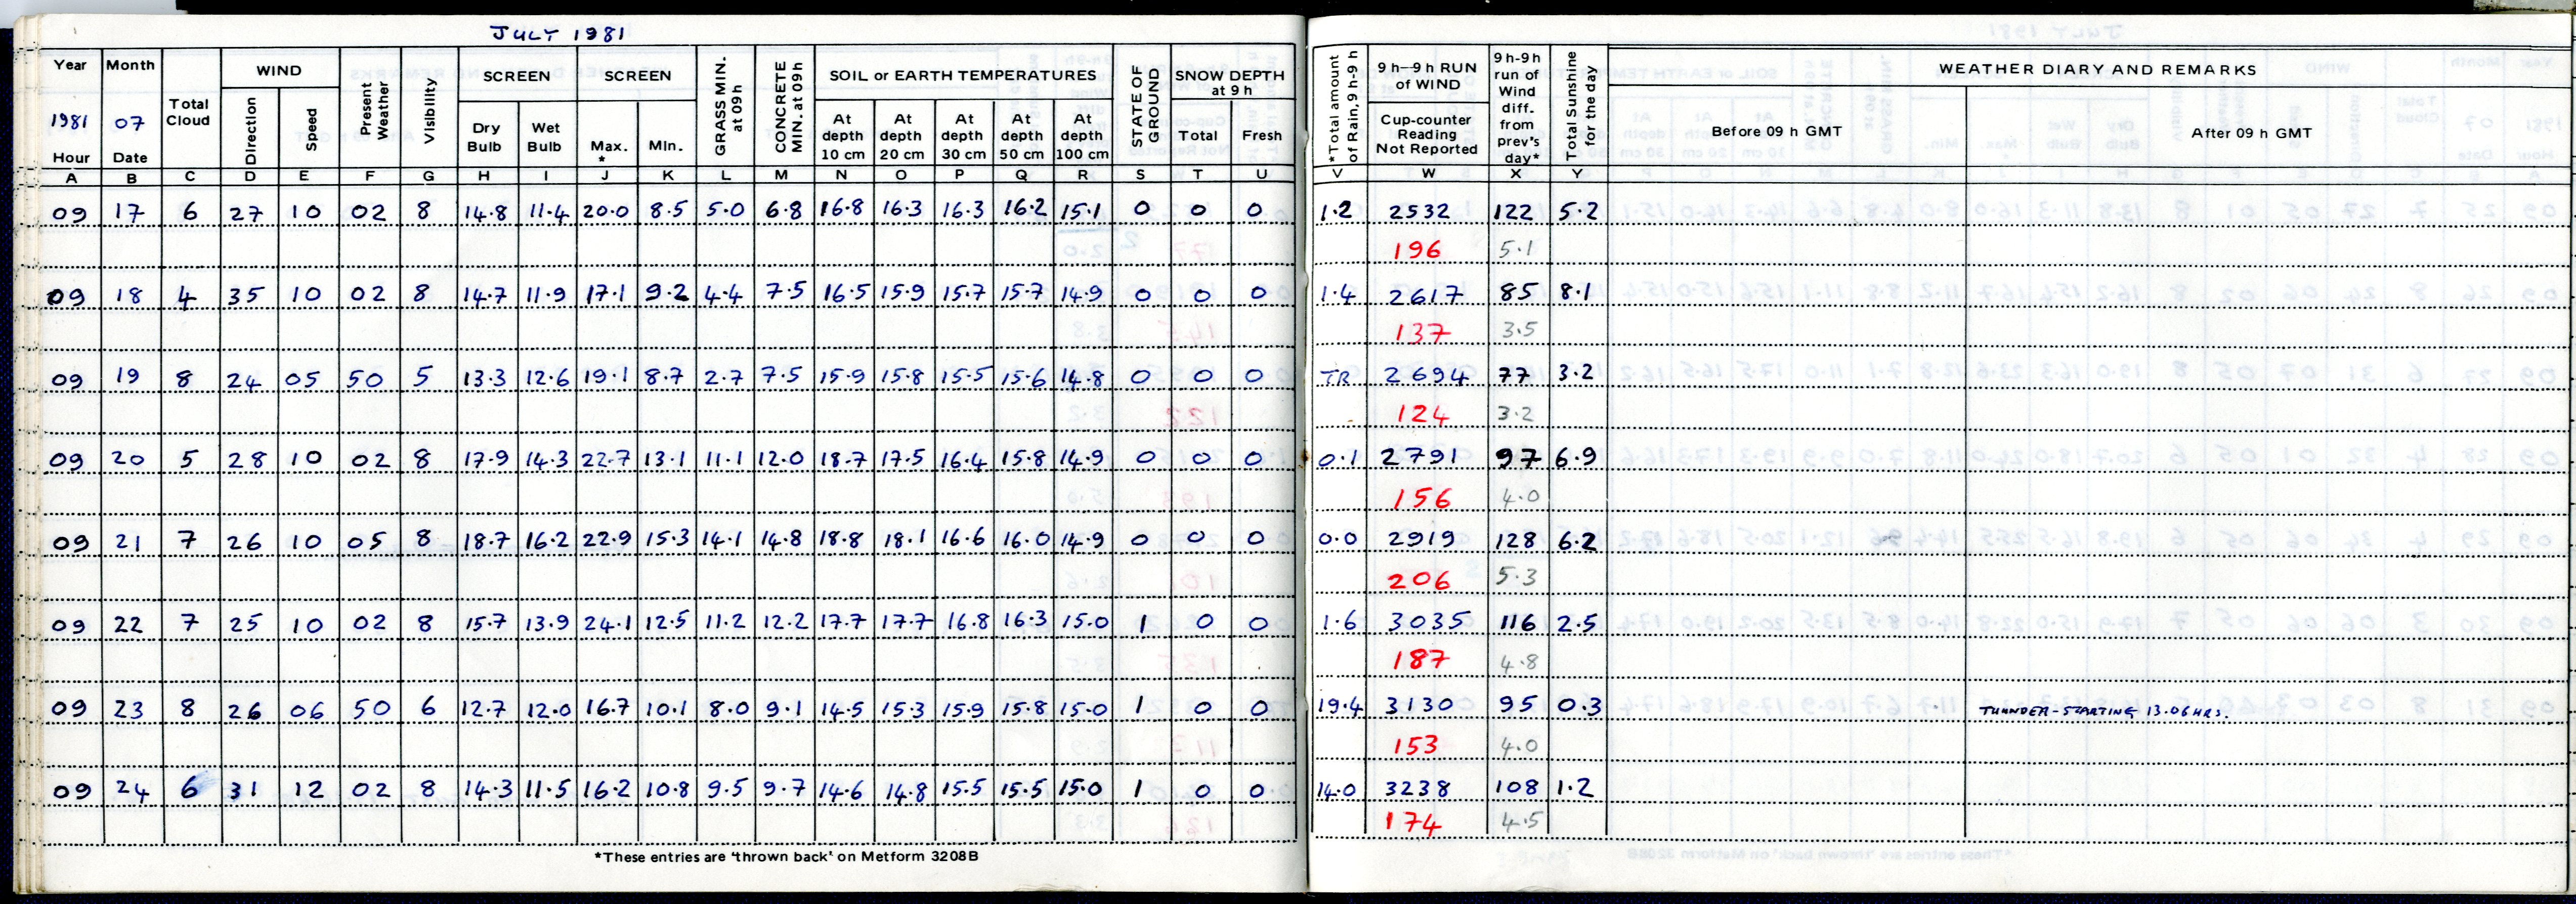 JULY 1981
Year Month Total Cloud WIND Present Weather Visibility SCREEN SCREEN GRASS MIN. at 09h CONCRETE MIN. at 09h SOIL or EARTH TEMPERATURES STATE OF GROUND SNOW DEPTH at 9 h *Total amount of Rain, 9h-9h 9h—9h RUN of WIND 9h-9h run of Wind diff. from prev's day* Total Sunshine for the day WEATHER DIARY AND REMARKS
1981 07 Direction Speed Dry Bulb Wet Bulb Max. * Min. At depth 10 cm At depth 20 cm At depth 30 cm At depth 50 cm At depth 100 cm Total Fresh Cup-counter Reading Not Reported Before 09 h GMT After 09 h GMT
Hour Date
A B C D E F G H I J K L M N O P Q R S T U V W X Y
09 17 6 27 10 02 8 14.8 11.4 20.0 8.5 5.0 6.8 16.8 16.3 16.3 16.2 15.1 0 0 0 1.2 2532 122 5.2
196 5.1
09 18 4 35 10 02 8 14.7 11.9 17.1 9.2 4.4 7.5 16.5 15.9 15.7 15.7 14.9 0 0 0 1.4 2617 85 8.1
137 3.5
09 19 8 24 05 50 5 13.3 12.6 19.1 8.7 2.7 7.5 15.9 15.8 15.5 15.6 14.8 0 0 0 TR 2694 77 3.2
124 3.2
09 20 5 28 10 02 8 17.9 14.3 22.7 13.1 11.1 12.0 18.7 17.5 16.4 15.8 14.9 0 0 0 0.1 2791 97 6.9
156 4.0
09 21 7 26 10 05 8 18.7 16.2 22.9 15.3 14.1 14.8 18.8 18.1 16.6 16.0 14.9 0 0 0 0.0 2919 128 6.2
206 5.3
09 22 7 25 10 02 8 15.7 13.9 24.1 12.5 11.2 12.2 17.7 17.7 16.8 16.3 15.0 1 0 0 1.6 3035 116 2.5
187 4.8
09 23 8 26 06 50 6 12.7 12.0 16.7 10.1 8.0 9.1 14.5 15.3 15.9 15.8 15.0 1 0 0 19.4 3130 95 0.3 THUNDER-STARTING 13.06 HRS.
153 4.0
09 24 6 31 12 02 8 14.3 11.5 16.2 10.8 9.5 9.7 14.6 14.8 15.5 15.5 15.0 1 0 0 14.0 3238 108 1.2
174 4.5
*These entries are 'thrown back' on Metform 3208B